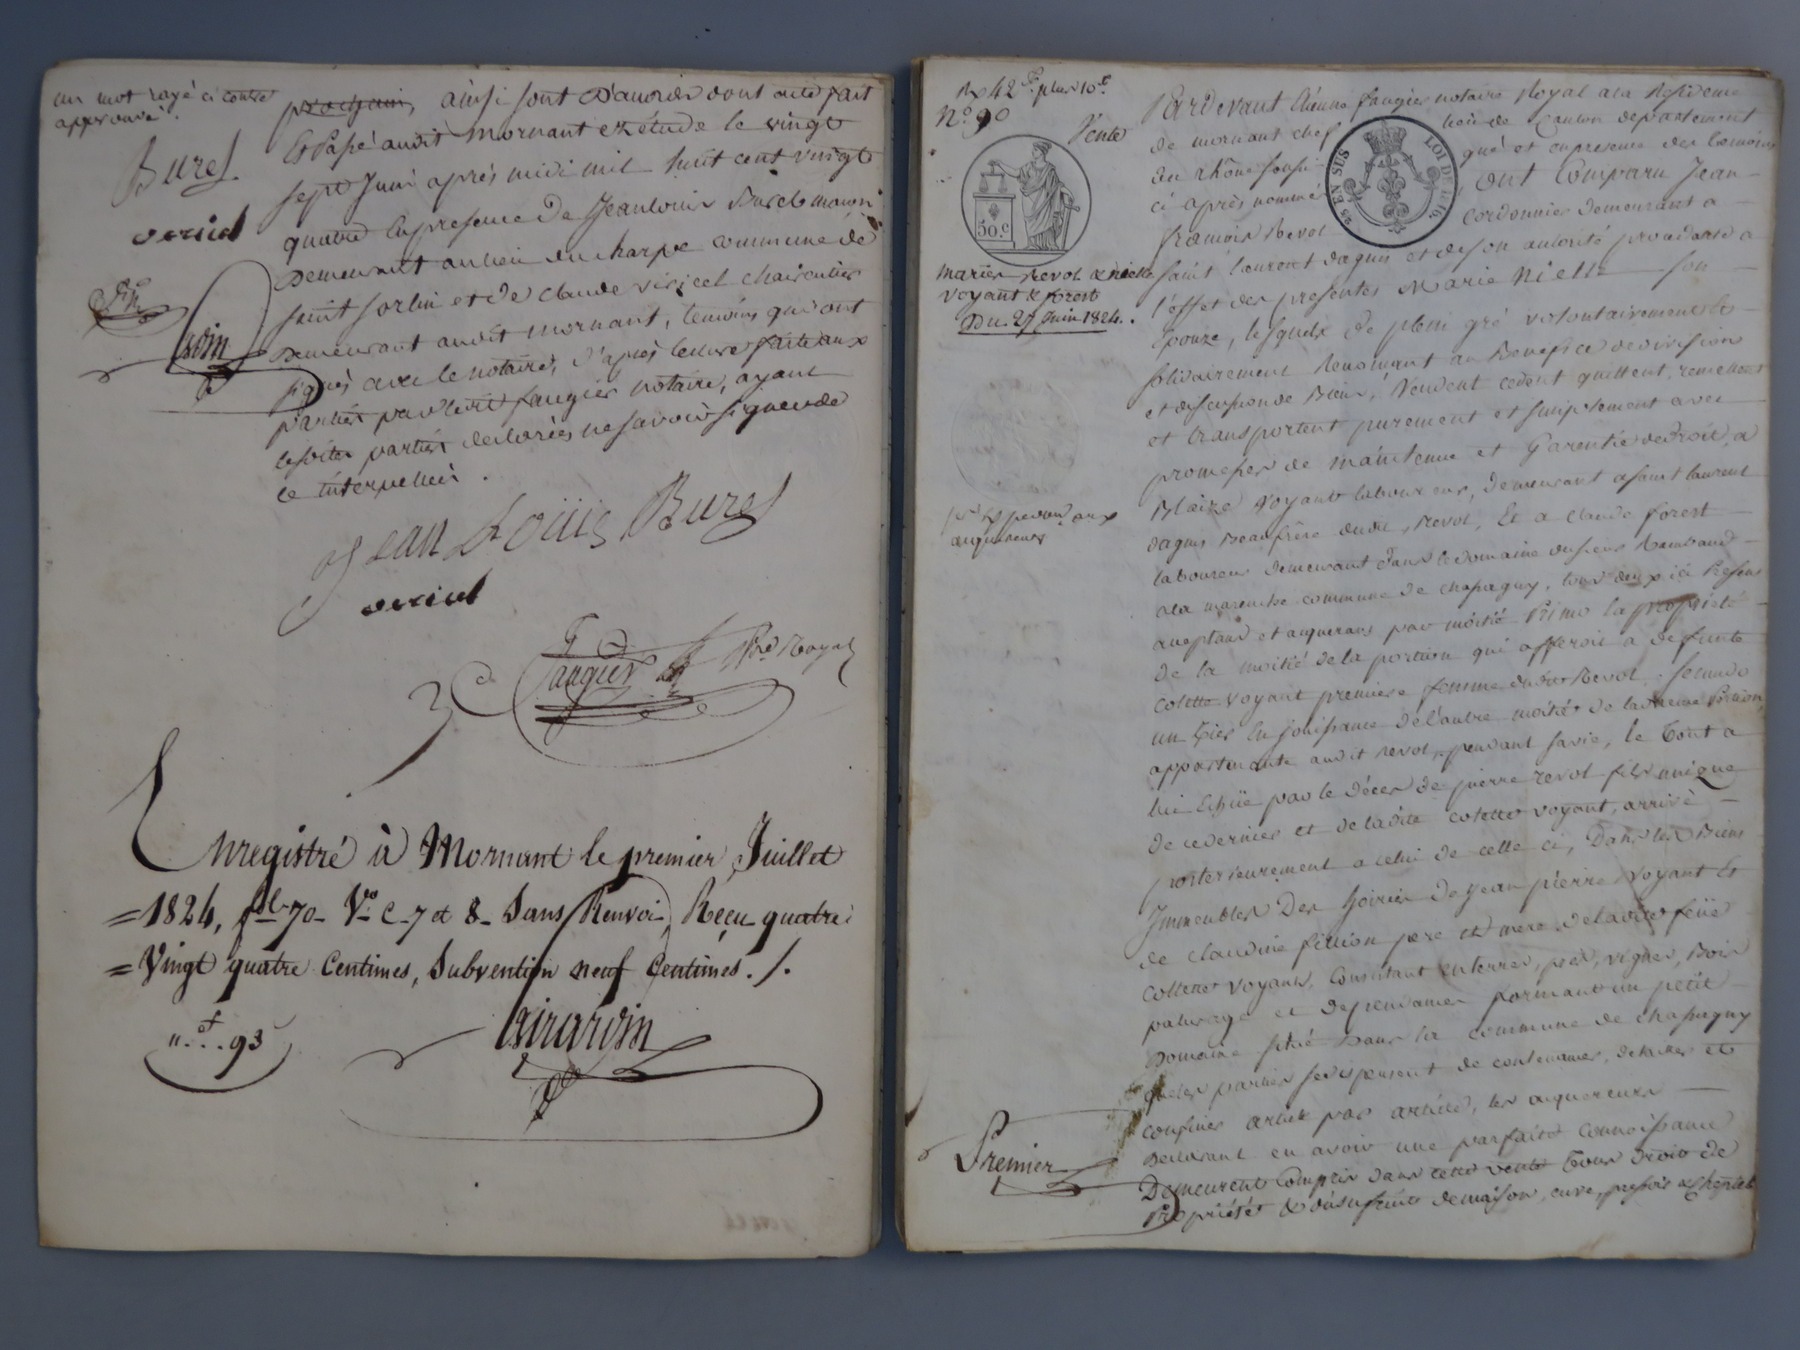 un mot rayé ci contre
approuvé.
Burel
vericel
prochain, ainsi sont d'accord dont acte fait
Et Passé audit mornant en étude le vingt
sept Juin après midi mil huit cent vingt
quatre En presence de Jean Louis Burel maçon
Demeurant au lieu du charpe commune de
saint sorlin et de Claude vericel chaircutier
Demeurant audit mornant, temoins qui ont
signés avec le notaire, d'après lecture faite aux
parties par ledit faugier notaire, ayant
lesdites parties declarées ne savoir signer de
ce interpellées.
Jean Louis Burel
vericel
Faugier Nre Royal
Enregistré à Mornant le premier Juillet
=1824, fol 70 Vo C. 7 et 8. Sans Renvoi, Reçu quatre
=Vingt quatre Centimes, Subvention neuf Centimes. /.
"f...93
Girardin
No 90
Vente
50.c
25 EN SUS
LOI DE
marier Revol & nielle
voyant & forest
Du 27 Juin 1824.
aux
acquereurs
Premier
Pardevant Etienne faugier notaire Royal a la Residence
de mornant chef lieu de Canton departement
du rhône sousigné et en presence des temoins
ci après nommés ont Comparu Jean
francois Revol cordonnier demeurant a
saint laurent dagny et de son autorité procedante a
l'effet des presentes Marie Nielle son
Epouze, lesquels de plein gré volontairement &
solidairement Renonçant au Benefice de division
et discussion de Biens, Vendent cedent quittent, remettent
et transportent purement et simplement avec
promesses de maintenue et Garentie de droit, a
Blaize Voyant laboureur, demeurant a saint laurent
dagny Beaufrère dudit Revol, Et a Claude forest
laboureur demeurant dans le domaine du sieur Rambaud
a la commune de chassagny, tous deux ici Presens
acceptans et acquerans par moitié Primo la propriété
de la moitié de la portion qui afferoit a defunte
Colette Voyant premiere femme dudit Revol, secundo
un tiers En jouissance de l'autre moitié de la même Portion
appartenante audit revol, pendant sa vie, le tout a
lui Echüe par le décès de pierre revol fils unique
de ce dernier et de ladite Colette voyant, arrivé
posterieurement a celui de celle ci, Dans les Biens
Immeubles Des hoirier de Jean pierre Voyant Et
de Claudine fillion pere et mere de ladite feüe
Collette voyant, Consistant en terres, prés, vignes, Bois
paturage et dependances formant un petit
Domaine situé Dans la commune de chassagny
que les parties se dispensent de contenances, detailler et
confiner article par article, les acquereurs
Declarant en avoir une parfaite connoissance
Demeurent Compris dans cette vente tous droits de
Propriétés & d'usufruit de maison, cuve, pressoir & Cheptels